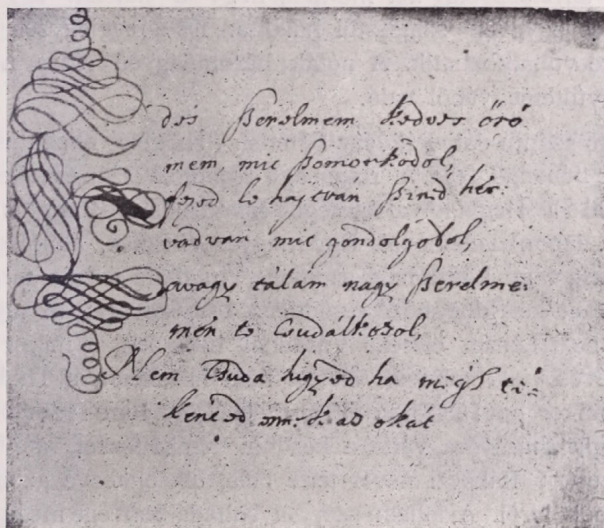 Édes szerelmem kedves örö
mem, mit szomorkodol,
fejed le hajtván szined her:
vadván mit gondolgodol,
avagy talám nagy szerelme:
men te csudálkozol,
Nem csuda higyed ha megh te:
kented ennek az okát